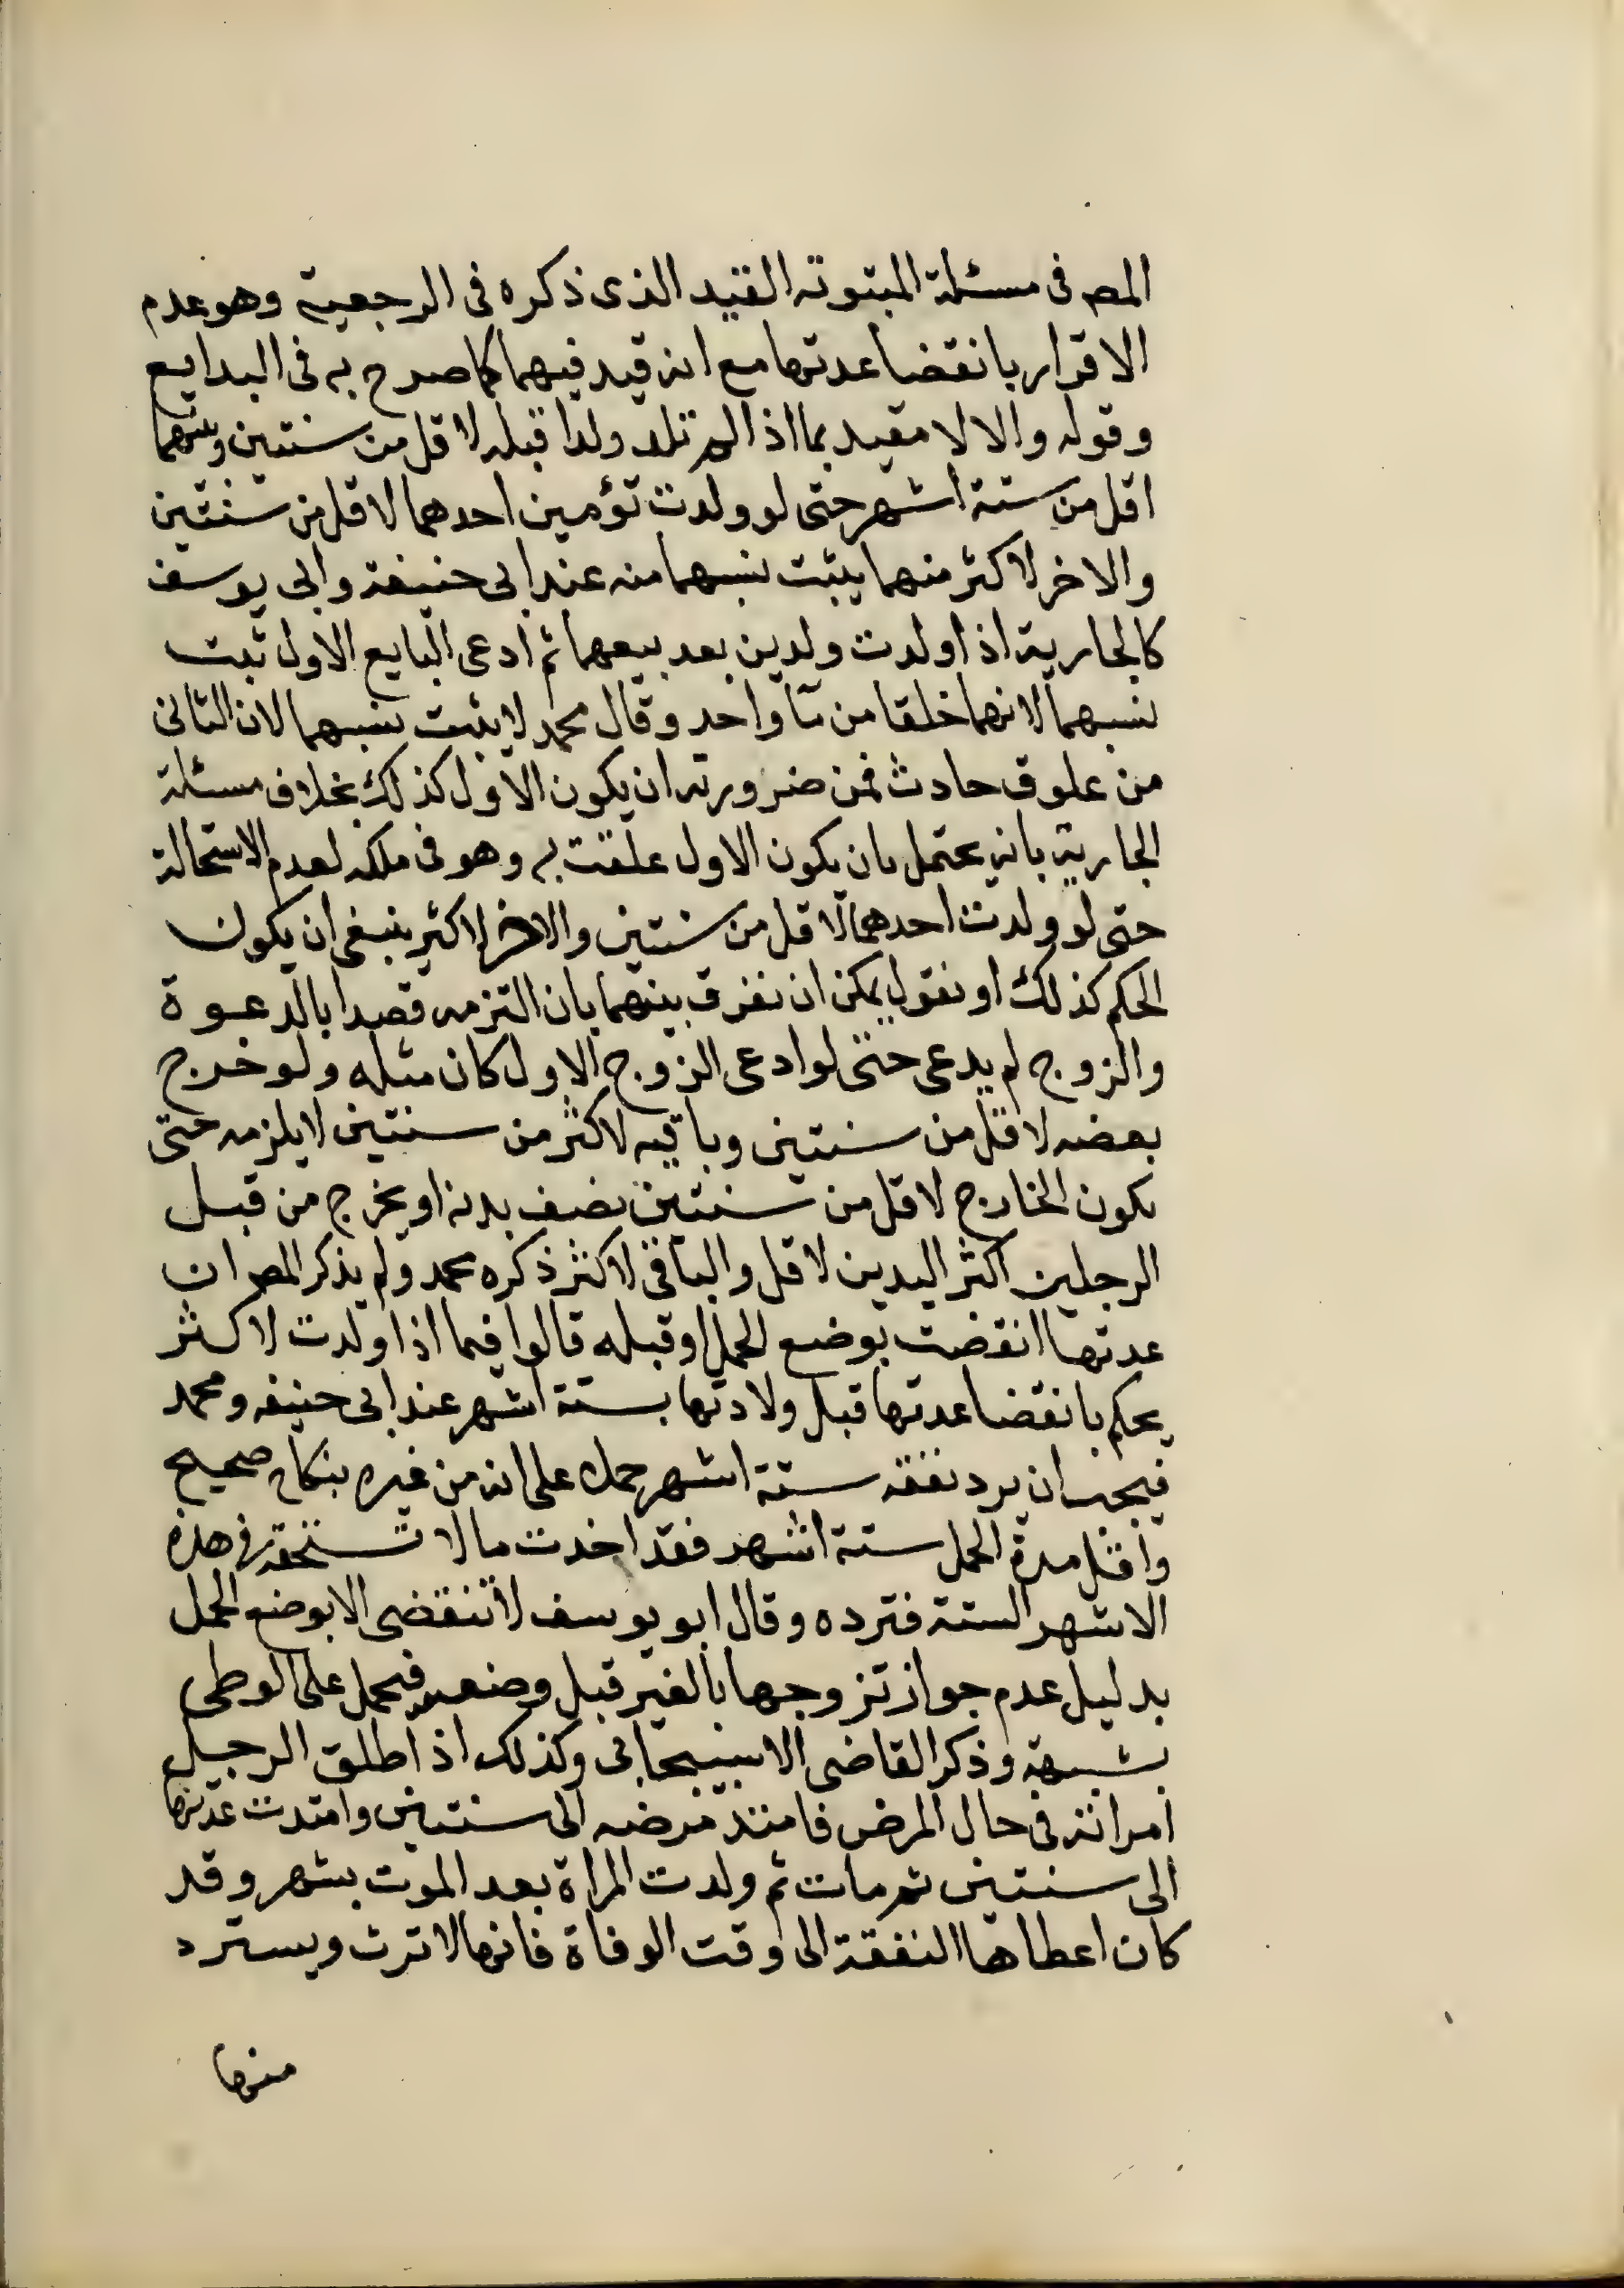 المص فى مسئلة المبتوته القيد الذى ذكره فى الرجعية وهو عدم
الاقرار بانقضا عدتها مع انه قيد فيهما كما صرح به فى البدايع
وقوله والا لا مقيد بما اذا لم تلد ولدا قبله لاقل من سنتين وبينهما
اقل من ستة اشهر حتى لو ولدت تؤمين احدهما لاقل من سنتين
والاخر لاكثر منهما يثبت نسبهما منه عند ابى حنيفة وابى يوسف
كالجارية اذا ولدت ولدين بعد بيعها ثم ادعى البايع الاول ثبت
نسبهما لانهما خلقا من مآ واحد وقال محمد لا يثبت نسبهما لان الثانى
من علوق حادث فمن ضرورته ان يكون الاول كذلك بخلاف مسئلة
الجارية بانه يحتمل بان يكون الاول علقت به وهو فى ملكه لعدم الاستحالة
حتى لو ولدت احدهما لاقل من سنتين والاخر لاكثر ينبغى ان يكون
الحكم كذلك او نقول يمكن ان نفرق بينهما بان التزمه قصدا بالدعوة
والزوج لم يدعى حتى لو ادعى الزوج الاول كان مثله ولو خرج
بعضه لاقل من سنتين وباقيه لاكثر من سنتين لا يلزمه حتى
يكون الخارج لاقل من سنتين نصف بدنه او يخرج من قبل
الرجلين اكثر اليدين لاقل والباقى لاكثر ذكره محمد ولم يذكر المص ان
عدتها انقضت بوضع الحمل او قبله قالوا فيما اذا ولدت لاكثر
يحكم بانقضا عدتها قبل ولادتها بستة اشهر عند ابى حنيفه ومحمد
فيجب ان يرد نفقه ستة اشهر حمله على انه من غيره بنكاح صحيح
واقل مدة الحمل ستة اشهر فقد اخدت ما لا تستحقه فى هذه
الاشهر الستة فترده وقال ابو يوسف لا تنقضى الا بوضع الحمل
بدليل عدم جواز تزوجها بالغير قبل وضعه فيحمل على الوطى
بشبهة وذكر القاضى الاسبيجابى وكذلك اذا طلق الرجل
امراته فى حال المرض فامتد مرضه الى سنتين وامتدت عدتها
الى سنتين ثم مات ثم ولدت المراة بعد الموت بشهر وقد
كان اعطاها النفقة الى وقت الوفاة فانها لا ترث ويسترد
منها